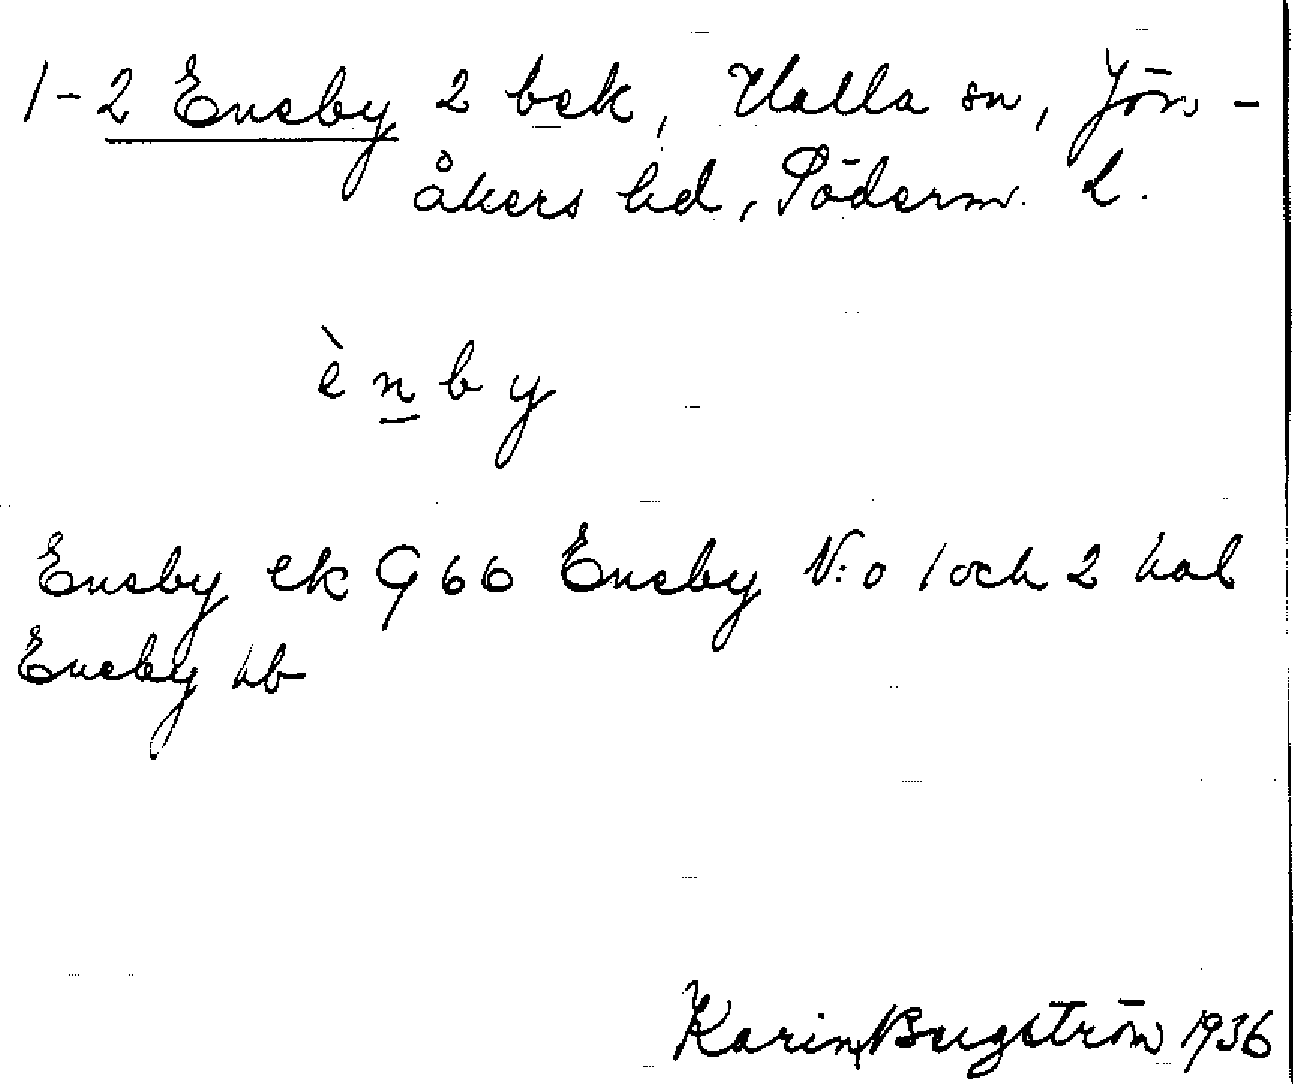 1-2 Eneby 2 bek, Halla sn, Jön-
åkers hd, Söderm. l.
è n b y
Eneby ek G 66 Eneby N:o 1 och 2 hal
Eneby hb
Karin Bergström 1936